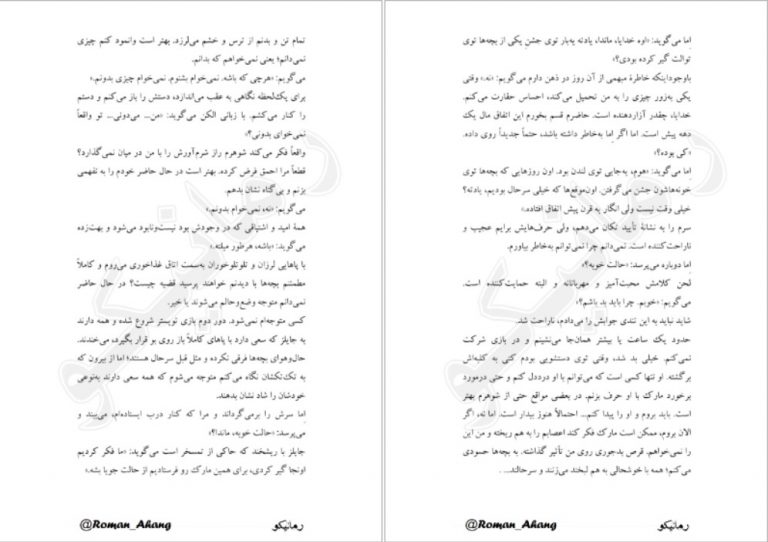 اِما می‌گوید: «اوه خدایا، ماندا، یادته یه‌بار توی جشنِ یکی از بچه‌ها توی
توالت گیر کرده بودی؟»
باوجوداینکه خاطرهٔ مبهمی از آن روز در ذهن دارم می‌گویم: «نه.» وقتی
یکی به‌زور چیزی را به من تحمیل می‌کند، احساس حقارت می‌کنم.
خدایا، چقدر آزاردهنده است. حاضرم قسم بخورم این اتفاق مال یک
دهه پیش است. اما اگر اِما به‌خاطر داشته باشد، حتماً جدیداً روی داده.
«کی بوده؟»
اِما می‌گوید: «هوم، یه‌جایی توی لندن بود. اون روزهایی که بچه‌ها توی
خونه‌هاشون جشن می‌گرفتن. اون‌موقع‌ها که خیلی سرحال بودیم، یادته؟
خیلی وقت نیست ولی انگار یه قرن پیش اتفاق افتاده.»
سرم را به نشانهٔ تأیید تکان می‌دهم، ولی حرف‌هایش برایم عجیب و
ناراحت‌کننده است. نمی‌دانم چرا نمی‌توانم به‌خاطر بیاورم.
اِما دوباره می‌پرسد: «حالت خوبه؟»
لحن کلامش محبت‌آمیز و مهربانانه و البته حمایت‌کننده است.
می‌گویم: «خوبم. چرا باید بد باشم؟»
شاید نباید به این تندی جوابش را می‌دادم، ناراحت شد.
حدود یک ساعت یا بیشتر همان‌جا می‌نشینم و در بازی شرکت
نمی‌کنم. خیلی بد شد، وقتی توی دستشویی بودم کنی به کلبه‌اش
برگشته. او تنها کسی است که می‌توانم با او درددل کنم و حتی درمورد
برخورد مارک با او حرف بزنم. در بعضی مواقع حتی از شوهرم بهتر
است. باید بروم و او را پیدا کنم... احتمالاً هنوز بیدار است. اما نه، اگر
الان بروم، ممکن است مارک فکر کند اعصابم را به هم ریخته و من این
را نمی‌خواهم. قرص بدجوری روی من تأثیر گذاشته. به بچه‌ها حسودی
می‌کنم؛ همه با خوشحالی به هم لبخند می‌زنند و سرحالند... .
رمانیکو
@Roman_Ahang
تمام تن و بدنم از ترس و خشم می‌لرزد. بهتر است وانمود کنم چیزی
نمی‌دانم؛ یعنی نمی‌خواهم که بدانم.
می‌گویم: «هرچی که باشه. نمی‌خوام بشنوم. نمی‌خوام چیزی بدونم.»
برای یک‌لحظه نگاهی به عقب می‌اندازد، دستش را باز می‌کند و دستم
را کنار می‌کشم. با زبانی الکن می‌گوید: «من... می‌دونی... تو واقعاً
نمی‌خوای بدونی؟»
واقعاً فکر می‌کند شوهرم راز شرم‌آورش را با من در میان نمی‌گذارد؟
قطعاً مرا احمق فرض کرده. بهتر است در حال حاضر خودم را به نفهمی
بزنم و بی‌گناه نشان بدهم.
می‌گویم: «نه، نمی‌خوام بدونم.»
همهٔ امید و اشتیاقی که در وجودش بود نیست‌ونابود می‌شود و بهت‌زده
می‌گوید: «باشه، هرطور میلته.»
با پاهایی لرزان و تلوتلوخوران به‌سمت اتاق غذاخوری می‌روم و کاملاً
مطمئنم بچه‌ها با دیدنم خواهند پرسید قضیه چیست؟ در حال حاضر
نمی‌دانم متوجه وضع‌وحالم می‌شوند یا خیر.
کسی متوجه‌ام نمی‌شود. دور دوم بازی تویستر شروع شده و همه دارند
به جایلز که سعی دارد با پاهای کاملاً باز روی بو قرار بگیرد، می‌خندند.
حال‌وهوای بچه‌ها فرقی نکرده و مثل قبل سرحال هستند؛ اما از بیرون که
به تک‌تکشان نگاه می‌کنم متوجه می‌شوم که همه سعی دارند به‌نوعی
خودشان را شاد نشان بدهند.
اِما سرش را برمی‌گرداند و مرا که کنار درب ایستاده‌ام، می‌بیند و
می‌پرسد: «حالت خوبه، ماندا؟»
جایلز با ریشخند که حاکی از تمسخر است می‌گوید: «ما فکر کردیم
اونجا گیر کردی، برای همین مارک رو فرستادیم از حالت جویا بشه.»
رمانیکو
@Roman_Ahang